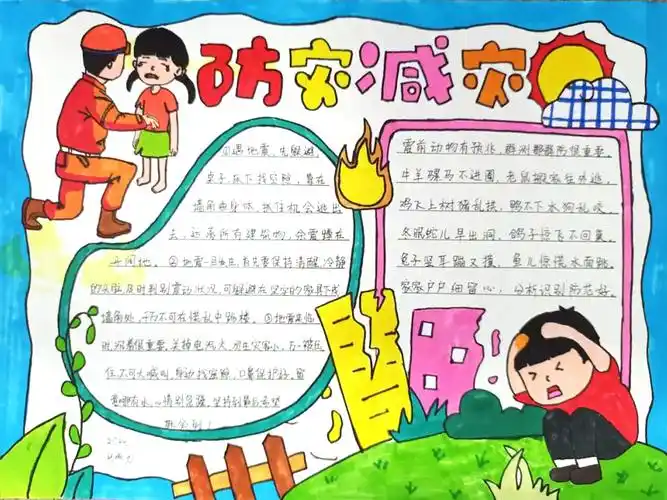 防灾減灾
遇地震,先躲避,
桌子床下找空隙,靠在
墙角曲身体,抓住机会逃出
去,远离所有建筑物,余震蹲在
开阔地。②地震一旦发生,首先要保持清醒、冷静
的头脑,及时判别震动状况,可躲避在坚实的家具下或
墙角处,千万不可在慌乱中跳楼。③地震来临
时,沉着很重要,关掉电汽火,灾害小,万一被压
住不可大喊叫,身边找空隙,口鼻保护好。留
意哪有水,特别忍,坚持到最后希望
就会到!
震前动物有预兆,群测群防很重要。
牛羊骡马不进圈,老鼠搬家往外逃。
鸡飞上树猪乱拱,鸭不下水狗乱咬。
冬眠蛇儿早出洞,鸽子惊飞不回巢。
兔子竖耳蹦又撞,鱼儿惊慌水面跳。
家家户户细留心,分析识别防范好。